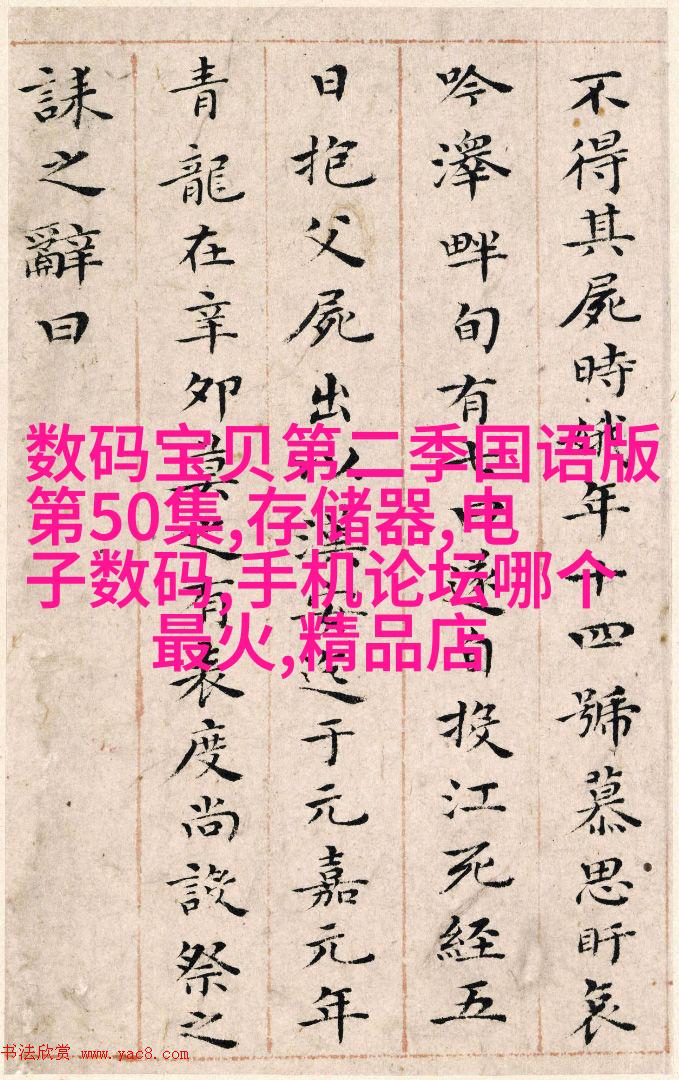 不得其屍時娥年十四號慕思盱哀
吟澤畔旬有七日遂自投江死經五
日抱父屍出以漢安迄于元嘉元年
青龍在辛卯莫之有表度尚設祭之
誄之辭曰
数码宝贝第二季国语版
第50集,存储器,电
子数码,手机论坛哪个
最火,精品店
书法欣赏 www.yac8.com